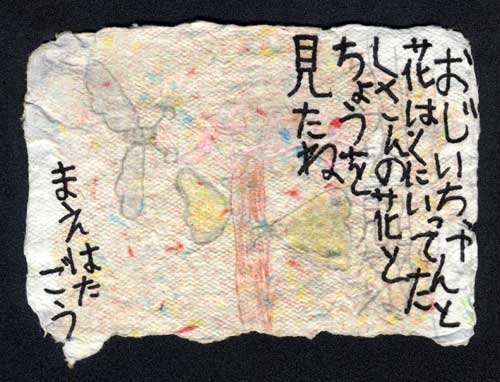 おじいちゃんと
花はくにいってた
くさんの花と
ちょうを
見たね
まえはた
ごう